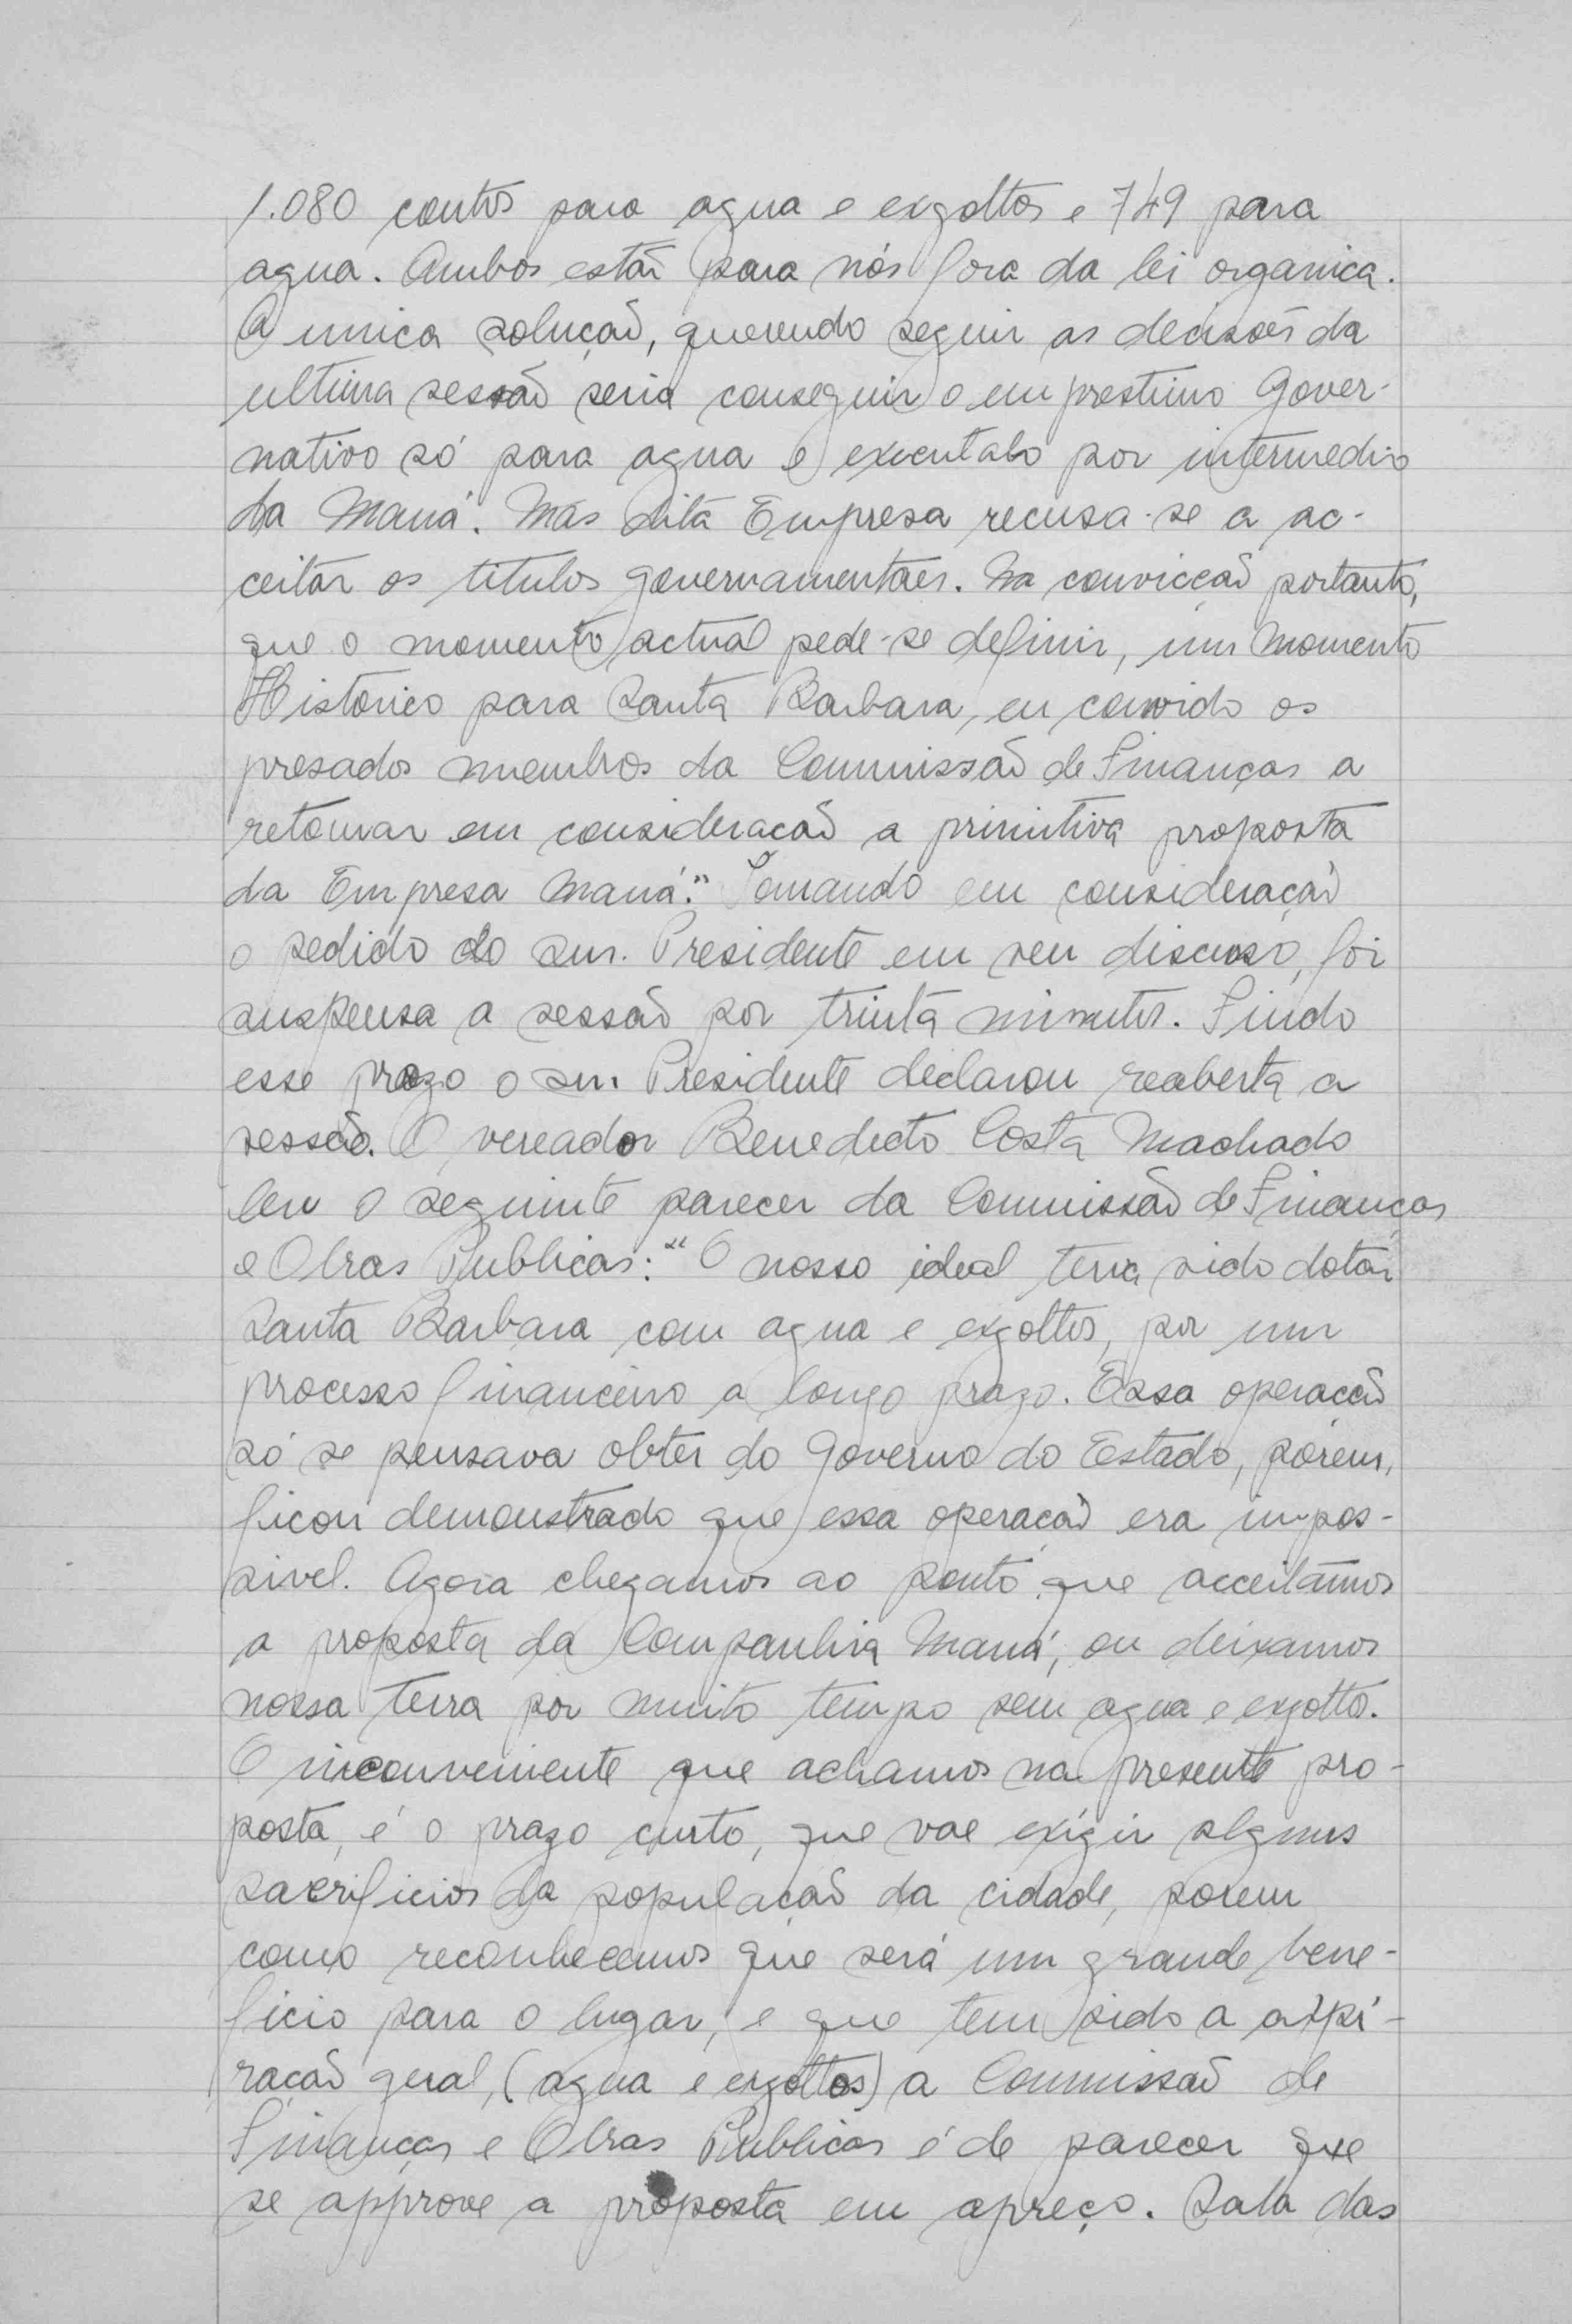 1.080 contos para agua e exgottos e 749 para
agua. Ambos estão para nós fora da lei organica.
A unica solução, querendo seguir as decisões da
ultima sessão seria conseguir o emprestimo Gover-
nativo só para agua e executalo por intermedio
da Mauá. Mas dita Empresa recusa-se a ac-
ceitar os titulos governamentaes. Na convicção portanto,
que o momento actual pede-se definir, um Momento
Historico para Santa Barbara, eu convido os
presados membros da Commissão de Finanças a
retomar em consideração a primitiva proposta
da Empresa Mauá." Tomando em consideração
o pedido do snr. Presidente em seu discurso, foi
suspensa a sessão por trinta minutos. Findo
esse prazo o snr. Presidente declarou reaberta a
sessão. O vereador Benedicto Costa Machado
leu o seguinte parecer da Commissão de Finanças
e Obras Publicas: "O nosso ideal teria sido dotar
Santa Barbara com agua e exgottos, por um
processo financeiro a longo prazo. Essa operacção
só se pensava obter do Governo do Estado, porém,
ficou demonstrado que essa operação era impos-
sivel. Agora chegamos ao ponto que acceitamos
a proposta da Companhia Mauá, ou deixamos
nossa terra por muito tempo sem agua e exgotto.
O inconveniente que achamos na presente pro-
posta, é o prazo curto, que vae exigir alguns
sacrificios da população da cidade, porem
como reconhecemos que será um grande bene-
ficio para o lugar, e que tem sido a aspi-
ração geral, (agua e exgottos) a Commissão de
Finanças e Obras Publicas é de parecer que
se approve a proposta em apreço. Sala das